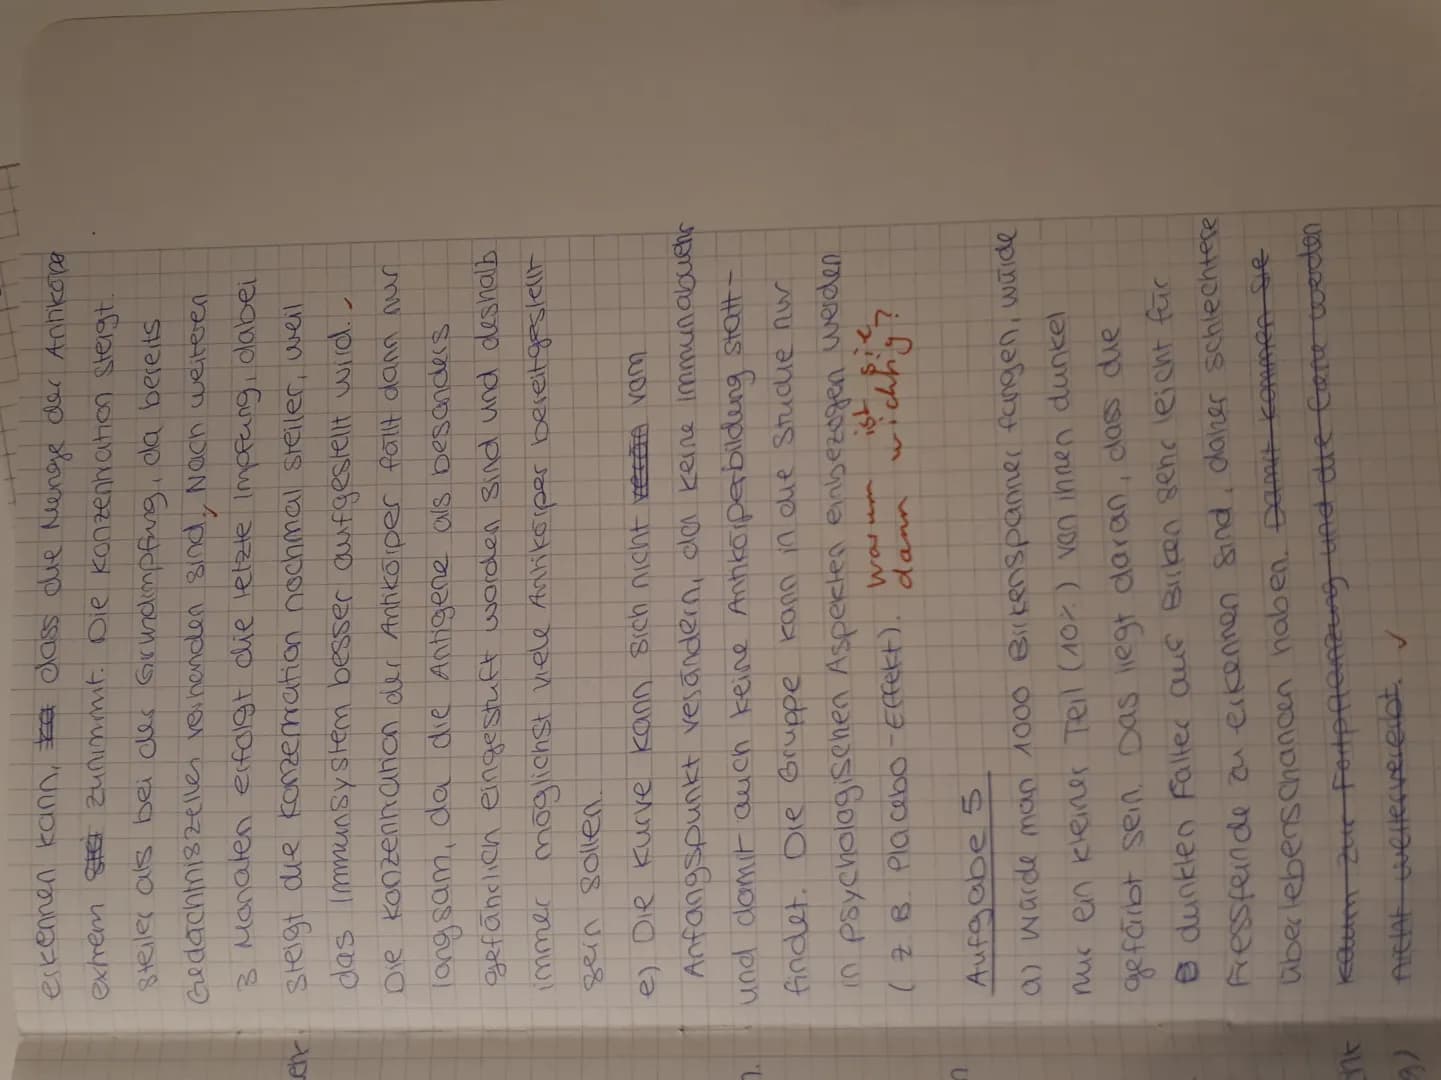 erkennen kann, dass die Menge der Antikörper
extrem zunimmt. Die Konzentration steigt
steiler als bei der Grundimpfung, da bereits
Gedächtniszellen vorhanden sind. Nach weiteren
3 Monaten erfolgt die letzte Impfung, dabei
steigt die Konzentration nochmal steiler, weil
das Immunsystem besser aufgestellt wird.
Die Konzentration der Antikörper fällt dann nur
langsam, da die Antigene als besonders
gefährlich eingestuft worden sind und deshalb
immer möglichst viele Antikörper bereitgestellt
sein sollen.
e) Die Kurve kann sich nicht vom
Anfangspunkt verändern, da keine Immunabwehr
und damit auch keine Antikörperbildung statt-
findet. Die Gruppe kann in die Studie nur
in psychologischen Aspekten einbezogen werden
(z B. Placebo-Effekt).
warum ist sie
dann wichtig?
Aufgabe 5
a) Würde man 1000 Birkenspanner fangen, würde
nur ein kleiner Teil (10%) von ihnen dunkel
gefärbt sein. Das liegt daran, dass die
dunklen Falter auf Birken sehr leicht für
Fressfeinde zu erkennen sind, daher schlechtere
Überlebenschancen haben. Damit kommen sie
kaum zur Fortpflanzung und die Farbe werden
nicht weitervererbt.